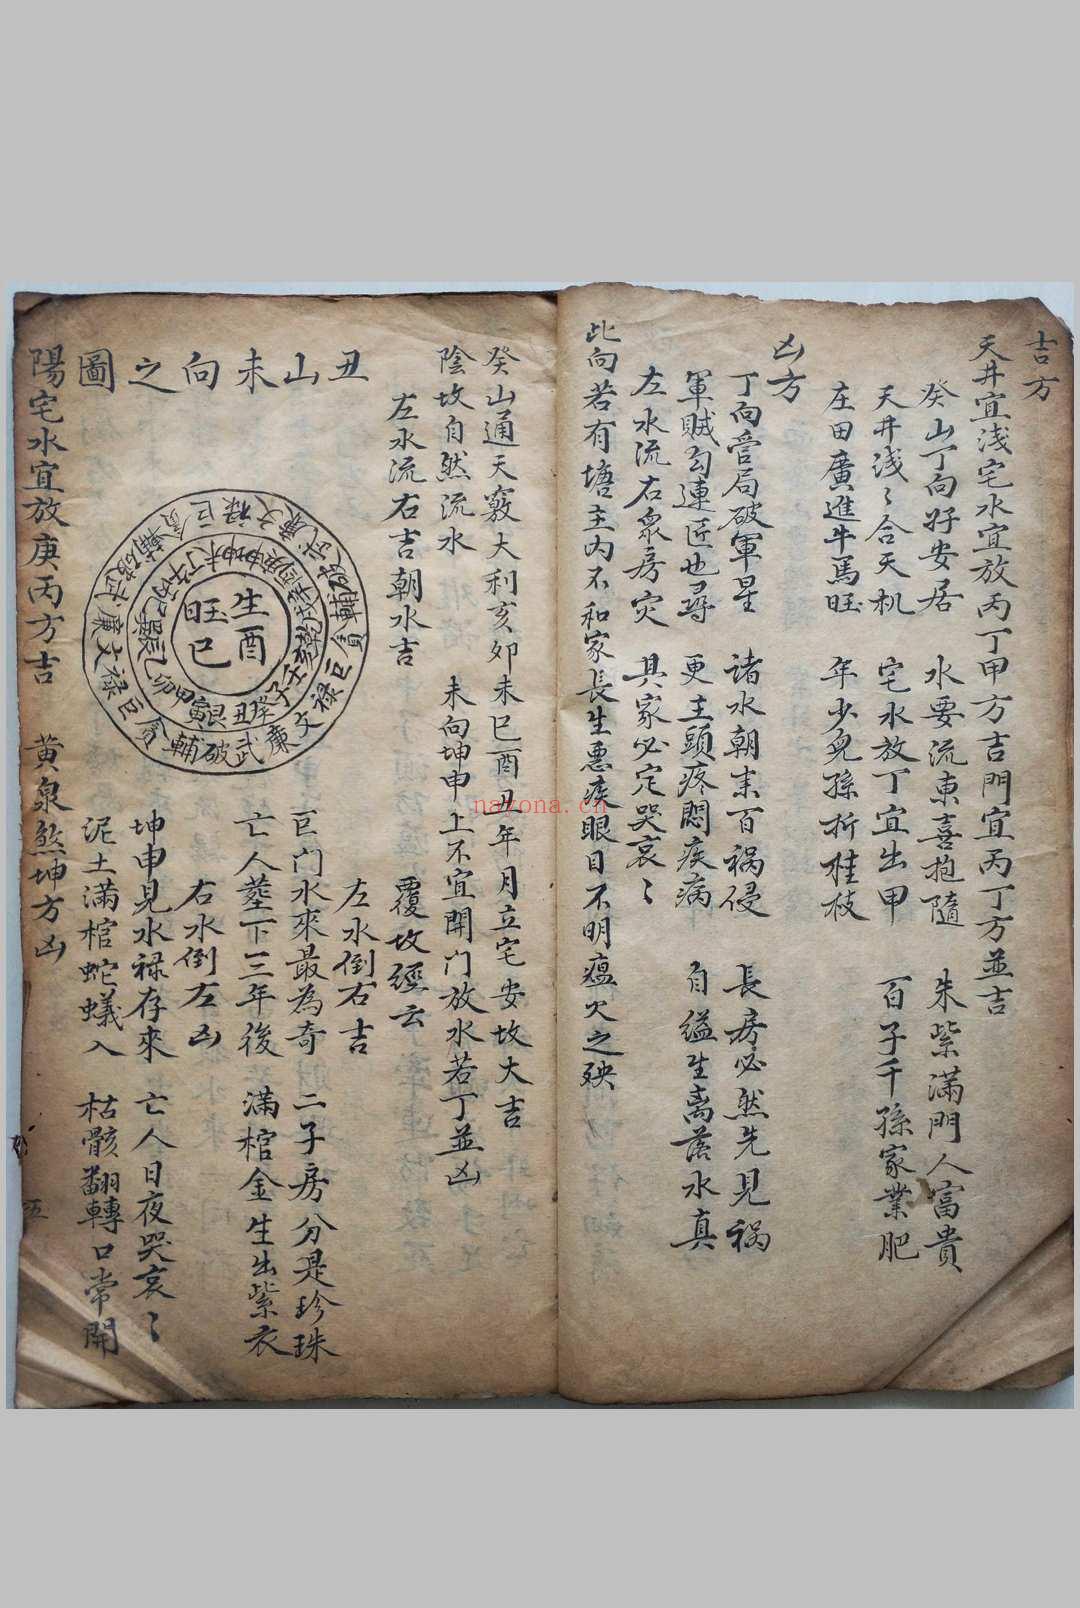 吉方
天井宜浅宅水宜放丙丁甲方吉門宜丙丁方並吉
癸山丁向好安居 水要流東喜抱隨 朱紫滿門人富貴
天井浅〻合天机 宅水放丁宜出甲 百子千孫家業肥
庄田廣進牛馬旺 年少兒孫折桂枝
凶方
丁向營局破軍星 諸水朝来百禍侵 長房必然先見禍
軍賊勾連匠也尋 更主頭疼悶疾病 自縊生离落水真
左水流右衆房灾 其家必定哭哀〻
此向若有塘主内不和家長生惡疾眼目不明瘟火之殃
癸山通天竅大利亥卯未巳酉丑年月立宅安坟大吉
陰坟自然流水 未向坤申上不宜開门放水若丁並凶
左水流右吉朝水吉 覆坟經云
左水倒右吉
丑山未向之圖
巨门水來最為奇 二子房分是珍珠
亡人塟下三年後 滿棺金生出紫衣
右水倒左凶
坤申見水禄存來 亡人日夜哭哀〻
泥土滿棺蛇蟻入 枯骸翻轉口常開
陽宅水宜放庚丙方吉 黄泉煞坤方凶
生 旺
酉 巳
伍
nayona.cn